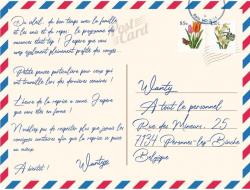 Du soleil, du bon temps avec la famille
et les amis et du repos... le programme des
vacances était top ! J'espère que vous
avez également pleinement profité des vôtres.
Petite pensée particulière pour ceux qui
ont travaillé durant ces dernières semaines !
L'heure de la reprise a sonné. J'espère
que vous êtes en forme !
N'oubliez pas de respecter plus que jamais les
consignes sanitaires afin que la reprise se passe
pour un mieux.
A bientôt ! Wantys
POST CARD
Wanty
A tout le personnel
Rue des Mineurs, 25
7134 Péronnes-lez-Binche
Belgique